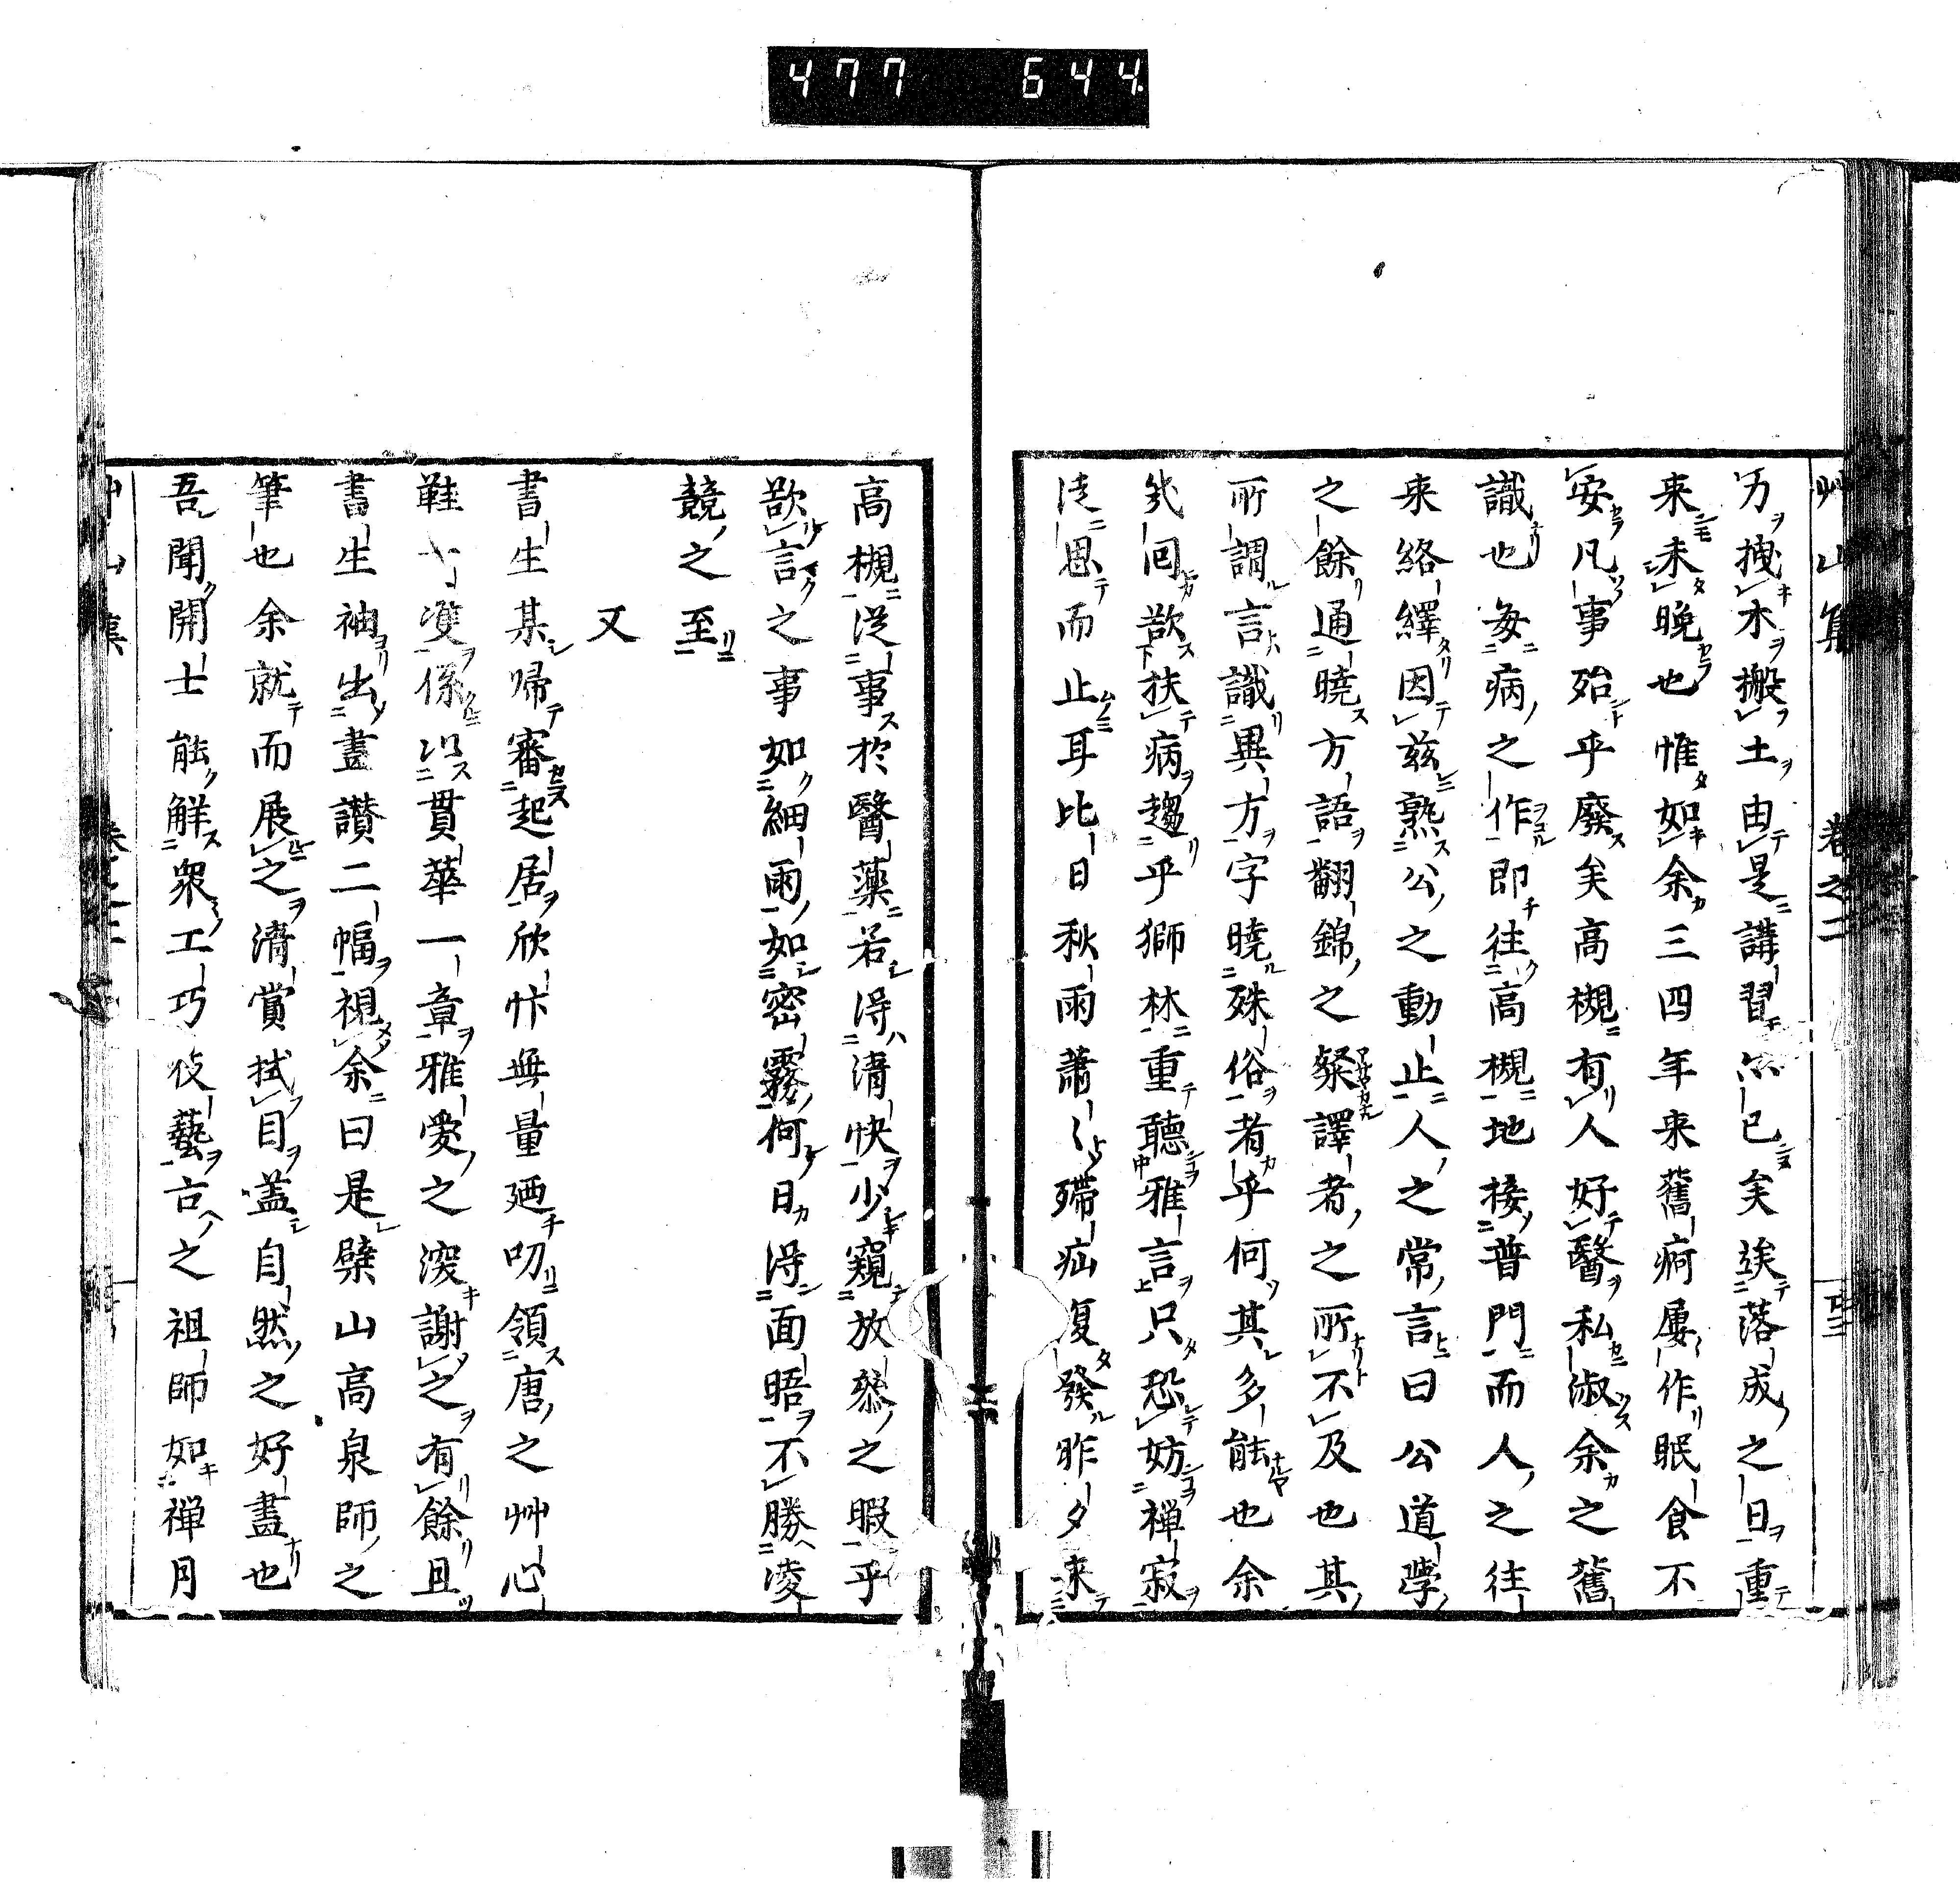 477 644
艸山集 卷之二
刃拽木搬土由是講習亦已矣竢落成之日重
来未晚也惟如余三四年来舊痾屢作眠食不
安凡事殆乎廢矣高槻有人好醫私淑余之舊
識也每病之作即往高槻地接普門而人之往
来絡繹因茲熟公之動止人之常言曰公道學
之餘通曉方語翻錦之粲譯者之所不及也其
所謂言識異方字曉殊俗者乎何其多能也余
幾回欲扶病趨乎獅林重聽雅言只恐妨禅寂
徒思而止耳比日秋雨蕭〻殢疝復發昨夕来
高槻從事於醫藥若得清快少窺放慘之暇乎
欲言之事如細雨如密霧何日得面晤不勝凌
兢之至
又
書生某帰審起居欣忭無量廼叨領唐之艸心
鞋一雙係以貫華一章雅愛之深謝之有餘且
書生袖出畫讃二幅視余曰是檗山高泉師之
筆也余就而展之清賞拭目盖自然之好畫也
吾聞開士能解衆工巧伎藝古之祖師如禅月